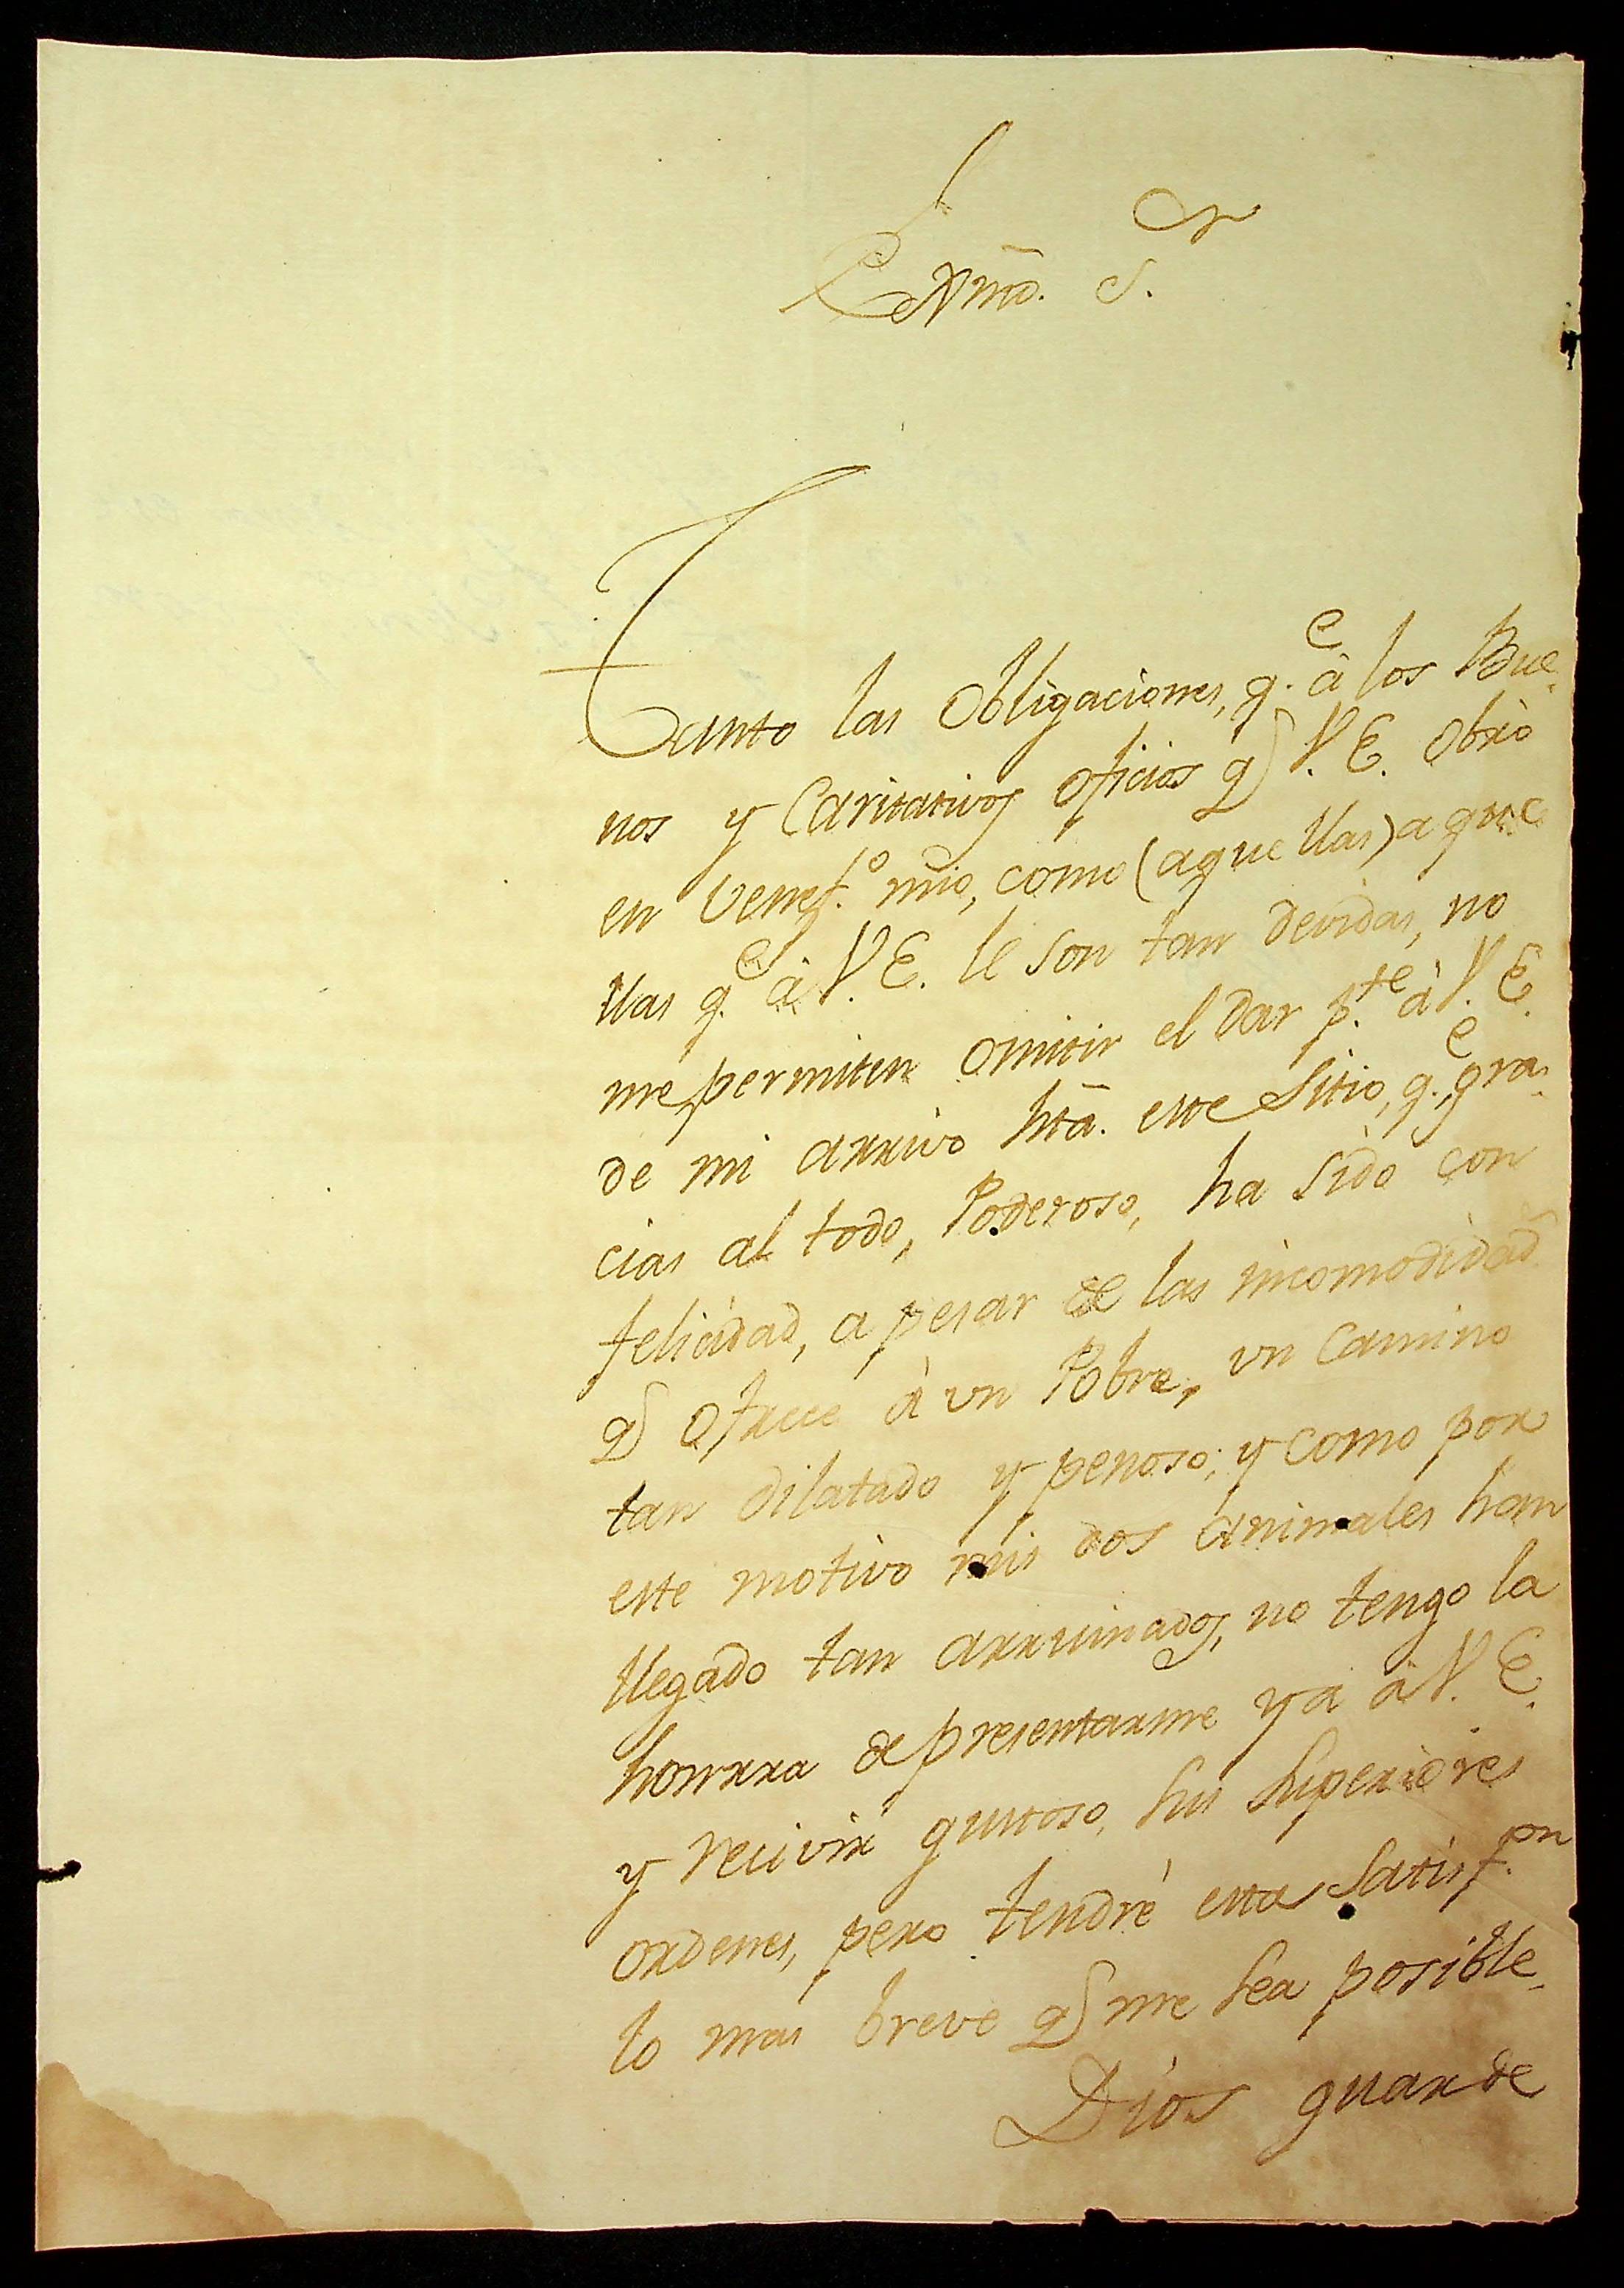 Exmõ. S.or
Tanto las Obligaciones, q.e â los Bue-
nos y Caritativos oficios q V. E. obrò
en venef.o mio, como (aquellas) aque
llas q.e â V. E. le son tan devidas, no
me permiten omitir el dar p.te â V. E.
de mi arrivo htã. este Sitio, q.e, gra-
cias al todo, Poderoso, ha sido con
felicidad, a pesar de las incomodidad.s
q ofrece â vn Pobre, vn Camino
tan dilatado y penoso; y como por
este motivo mis dos animales han
llegado tan arruinados, no tengo la
honrra de presentarme ya â V. E.
y recivir gustoso, sus superiores
ordenes, pero tendrè esta satisf.on
lo mas breve q me sea posible.
Dios guarde